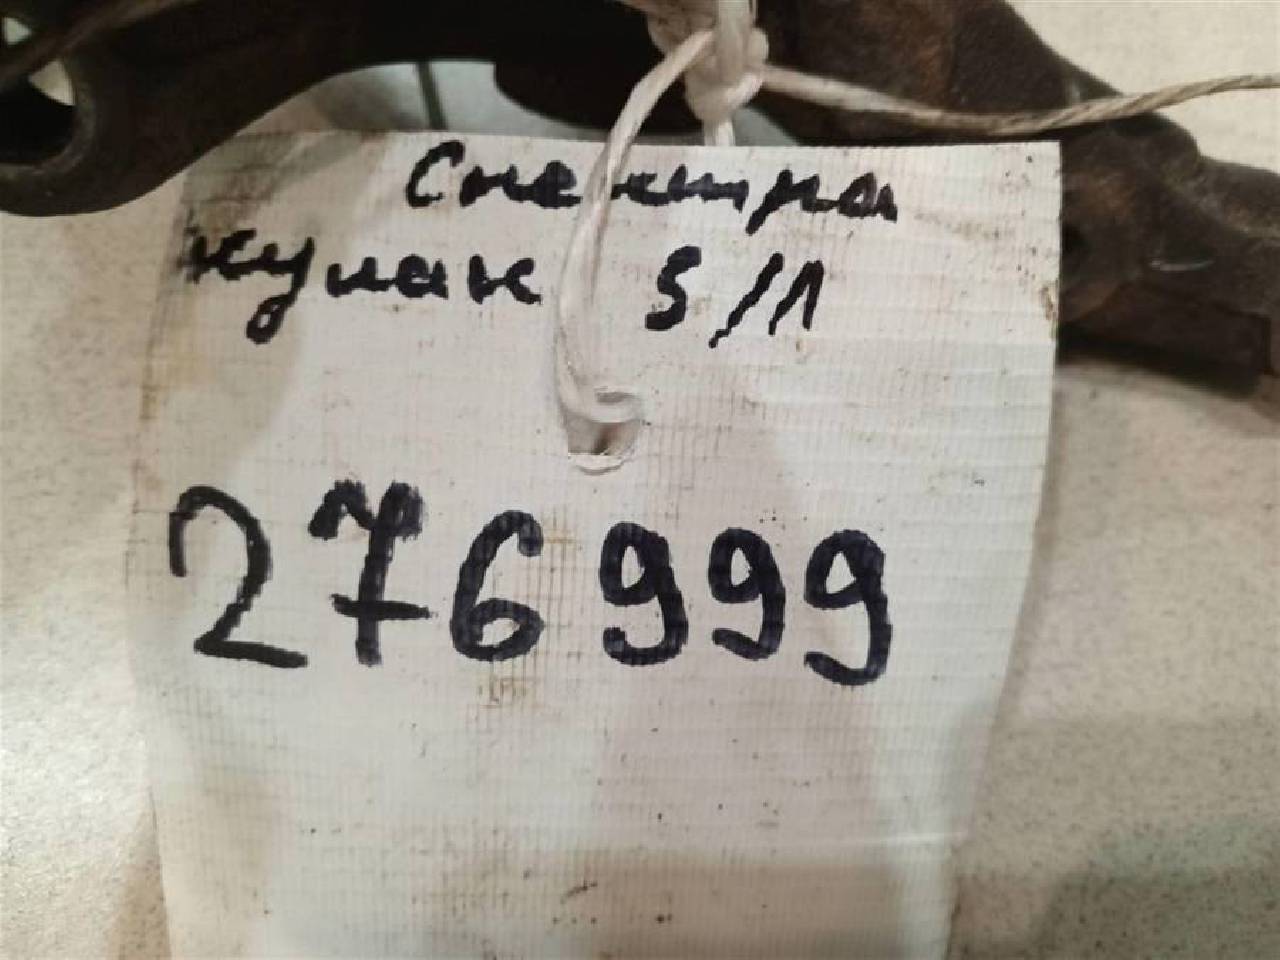 Спектра
кулак 5/Л
276999